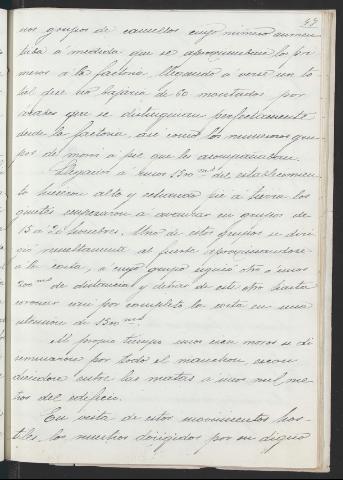 47
nos grupos de camellos cuyo número aumen
taba á medida que se aproximaban los pri
meros á la factoria, llegando á verse un to
tal de de 60 montados por
árabes que se distinguian perfectamente
desde la factoria, asi como los numerosos gru
pos de moros á pie que les acompañaban.
Llegados á unos 1500 m/s del establecimien
to hicieron alto y echando pié á tierra los
ginetes empezaron á avanzar en grupos de
15 á 20 hombres. Uno de estos grupos se diri
gió resueltamente al fuerte aproximandose
á la costa, á cuyo grupo siguió otro á unos
200 m/s de distancia y detras de este otro hasta
coronar casi por completo la costa en una
estension de 1500 m/s.
Al propio tiempo unos cien moros se di
seminaron por todo el manchon, escon
diendose entre las matas á unos mil me
tros del edificio.
En vista de estos movimientos hos
tiles, los nuestros dirigidos por su digno